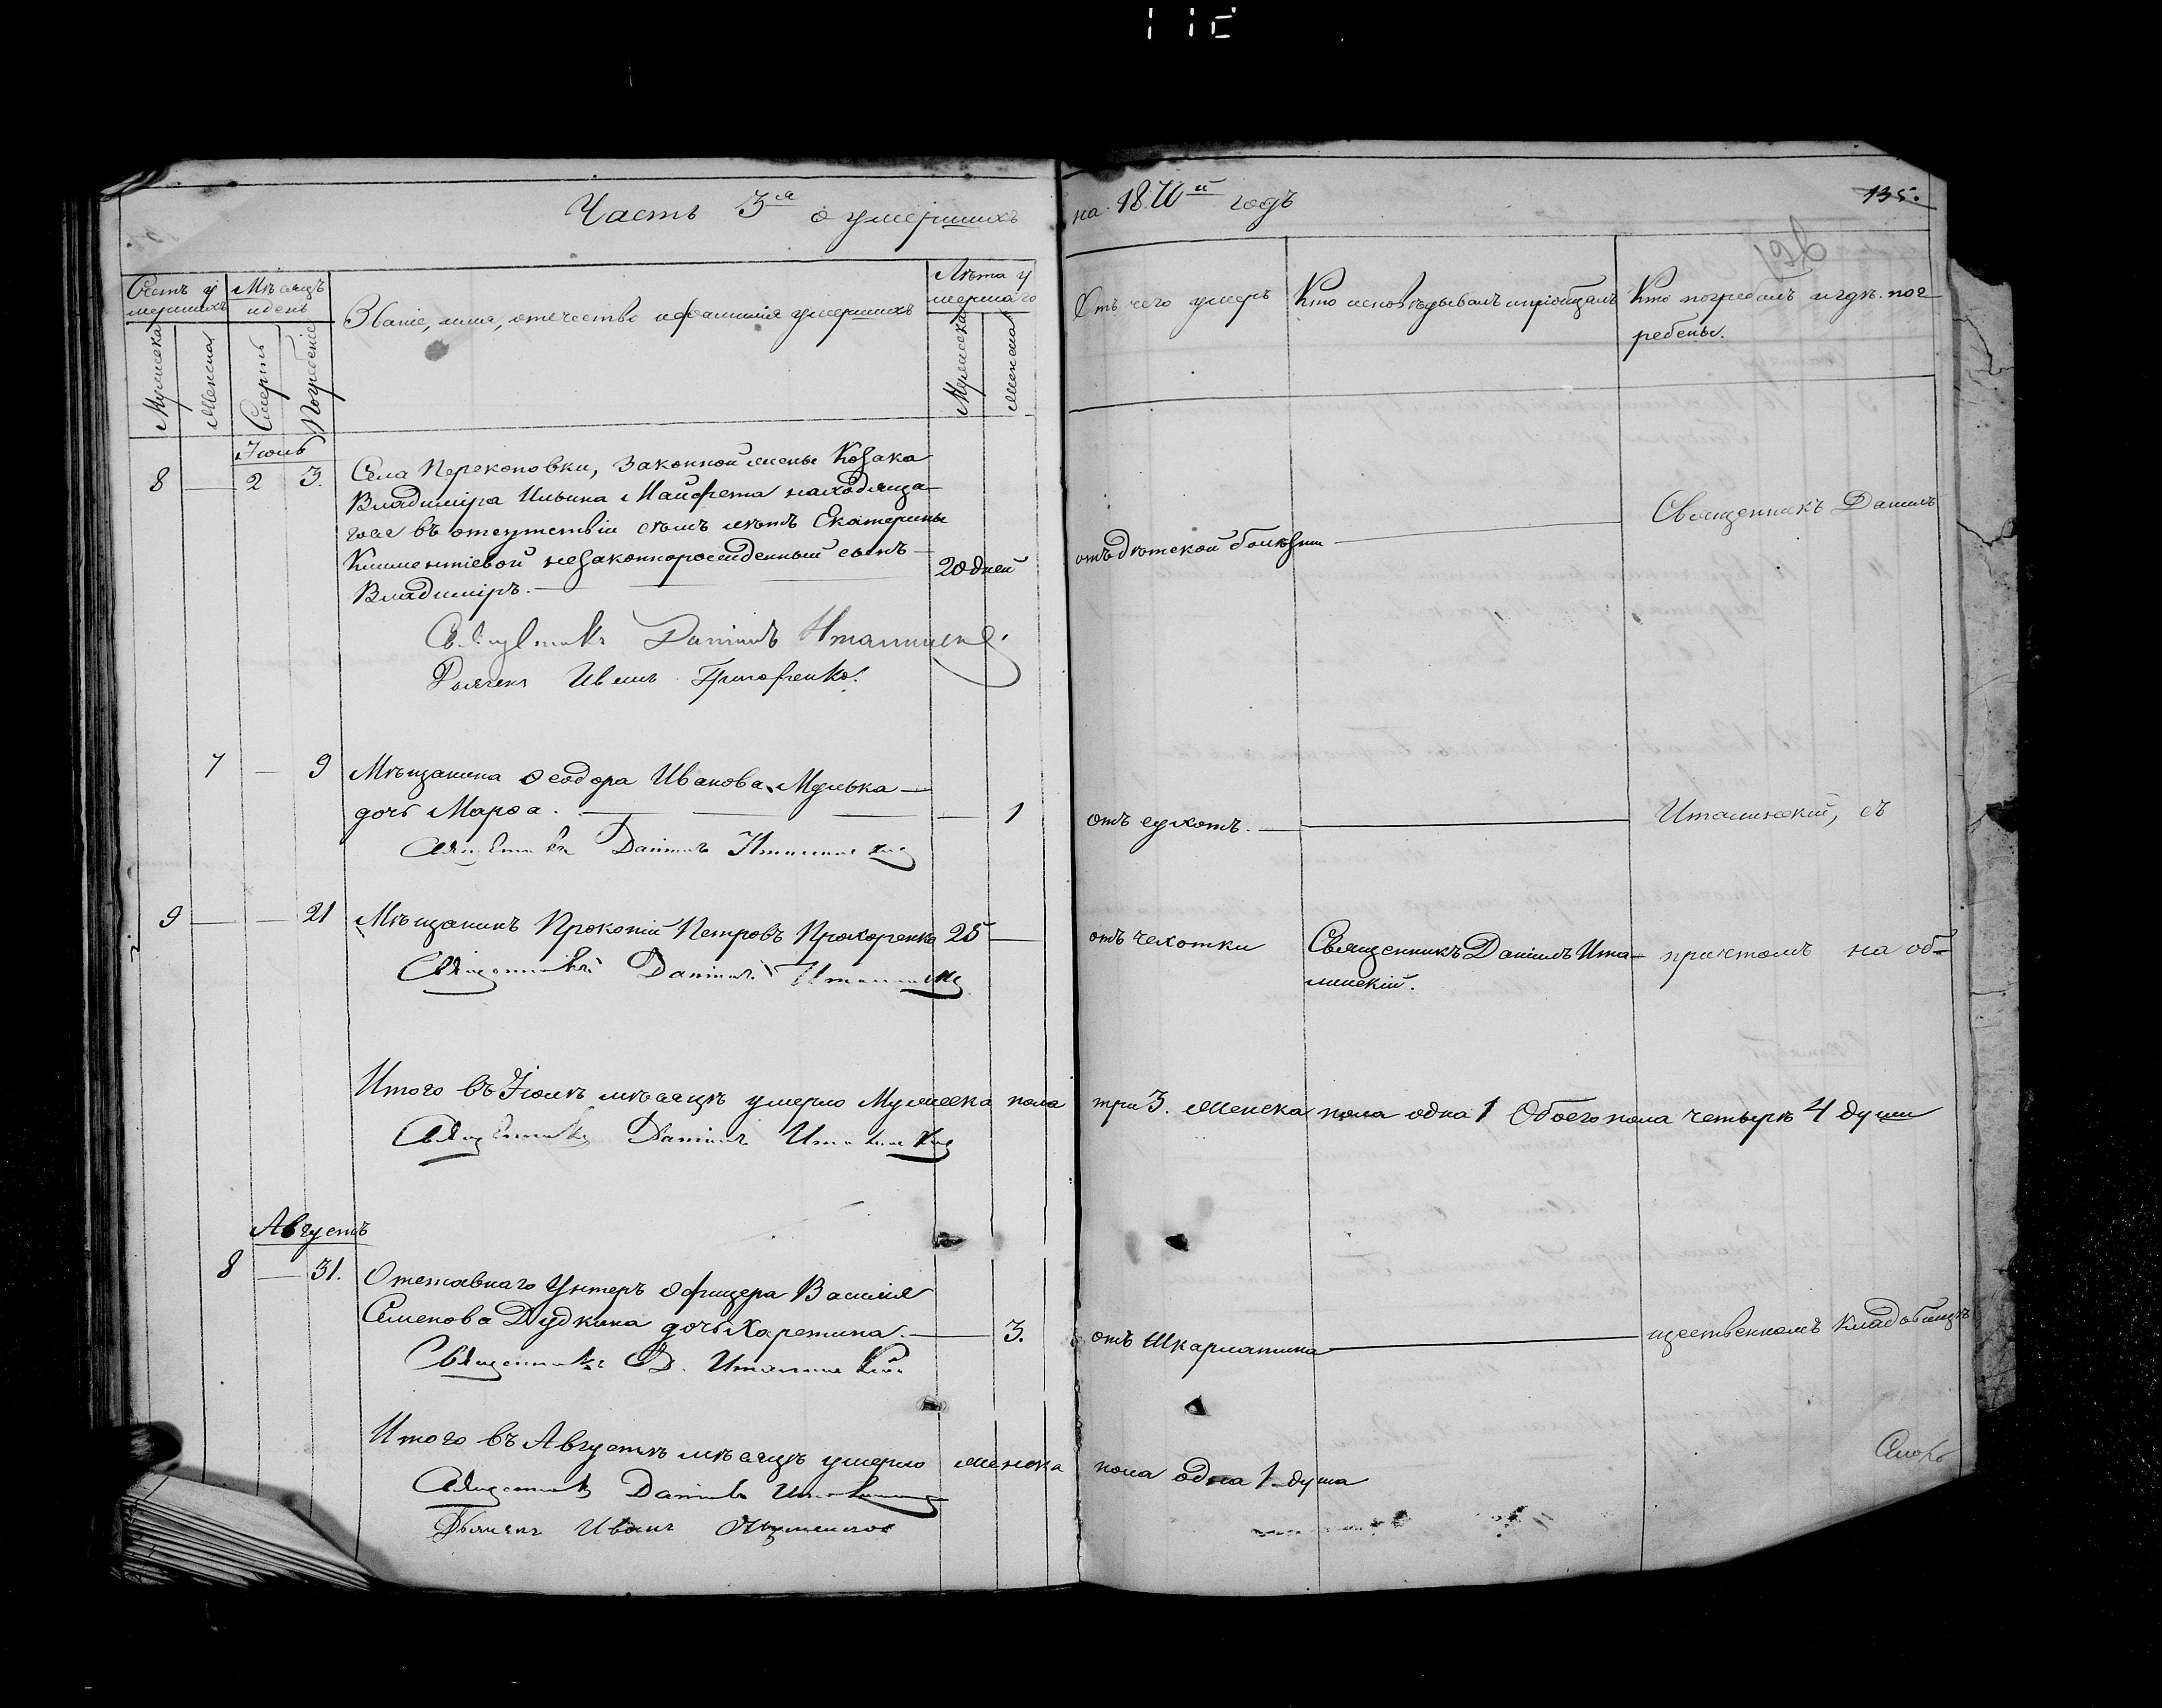 Часть 3ꙗ о умершихъ
на 1870й годъ
135.
Счетъ у
мершихъ
Мѣсяцъ
и день
Званіе, имя, отечество и фамилія умершихъ
Лѣта у
мершаго
Отъ чего умеръ
Кто исповѣдывалъ и пріобщалъ
Кто погребалъ и гдѣ пог
ребены.
Мужеска
Женска
Смерть
Погребеніе
Мужеска
Женска
Іюль
8 — 2 3.
Села Перекоповки, законной жены Козака
Владиміра Ильина Майфета находяща-
гося въ отсутствіи семь лѣтъ Екатерины
Климентіевой незаконнорожденный сынъ
Владиміръ.
20 дней
отъ дѣтской болѣзни
Священникъ Даніилъ
Священникъ Даніилъ Италинскій
Дьячекъ Иванъ
7 — 9
Мѣщанина Ѳеодора Иванова Мулька
дочь Марѳа. — 1
отъ сухотъ.
Италинскій, съ
Священникъ Даніилъ Италинскій
9 — — 21
Мѣщанинъ Прокопій Петровъ Прохоренко 25 —
отъ чахотки
Священникъ Даніилъ Ита-
линскій.
причтомъ на об-
Священникъ Даніилъ Италинскій
Итого въ Іюлѣ мѣсяцѣ умерло Мужеска пола три 3. Женска пола одна 1 Обоего пола четырѣ 4 души
Священникъ Даніилъ Италинскій
Августъ
8 — 31.
Отставнаго Унтеръ Офицера Василія
Семенова Дудкина дочь Харетина. — 3.
отъ Шкарлатина
щественномъ кладобищѣ
Священникъ Д. Италинскій
Итого въ Августѣ мѣсяцѣ умерло женска пола одна 1 душа
Священникъ Даніилъ Италинскій
Дьячекъ Иванъ